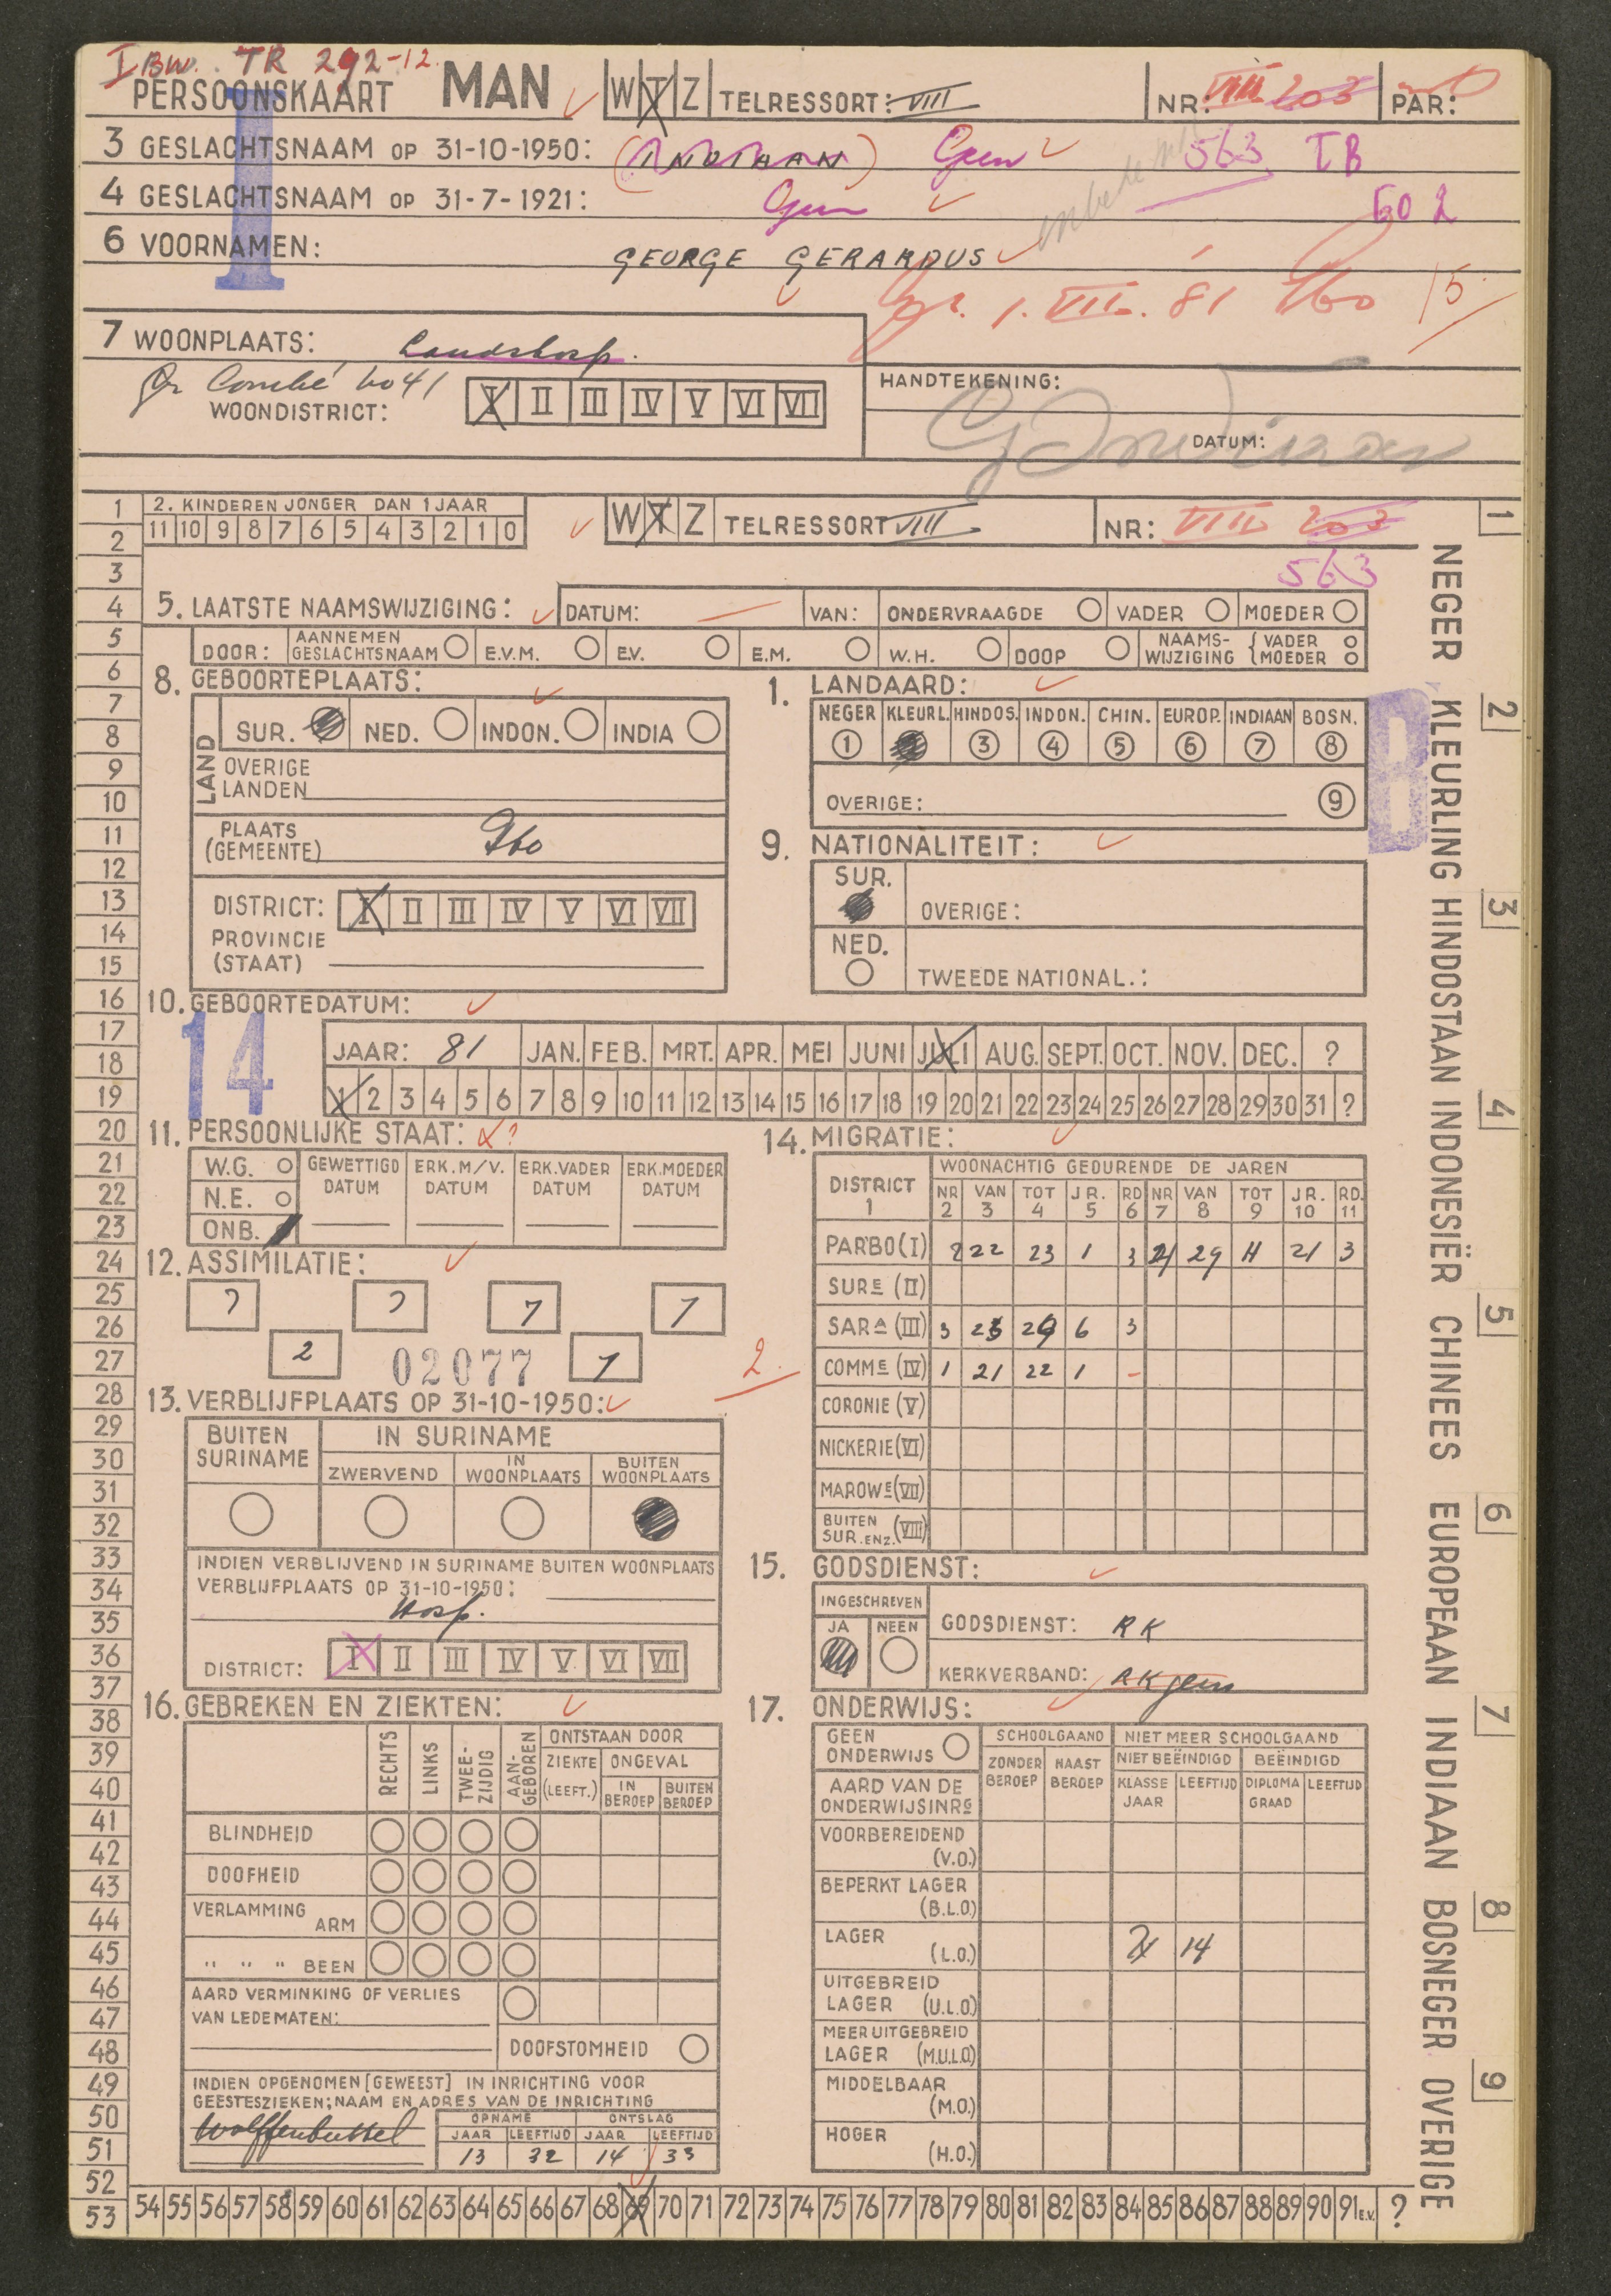 I BW. TR 292-12
PERSOONSKAART MAN W T Z TELRESSORT: VIII NR: VIII 203 PAR:
3 GESLACHTSNAAM OP 31-10-1950: (INDIAAN) Geen 563 TB
4 GESLACHTSNAAM OP 31-7-1921: Geen 602
6 VOORNAMEN: GEORGE GERARDUS
I
gr. 1. VII. 81 Pbo 15
7 WOONPLAATS: Landshosp.
Gr Combé 60 41
WOONDISTRICT: I II III IV V VI VII
HANDTEKENING:
DATUM:
2. KINDEREN JONGER DAN 1 JAAR
11 10 9 8 7 6 5 4 3 2 1 0
W T Z TELRESSORT VIII NR: VIII 203
563
5. LAATSTE NAAMSWIJZIGING: DATUM: VAN: ONDERVRAAGDE VADER MOEDER
DOOR: AANNEMEN GESLACHTSNAAM E.V.M. E.V. E.M. W.H. DOOP NAAMS-WIJZIGING { VADER MOEDER
8. GEBOORTEPLAATS:
LAND
SUR. NED. INDON. INDIA
OVERIGE LANDEN
PLAATS (GEMEENTE) Pbo
DISTRICT: I II III IV V VI VII
PROVINCIE (STAAT)
1. LANDAARD:
NEGER KLEURL. HINDOS. INDON. CHIN. EUROP. INDIAAN BOSN.
1 3 4 5 6 7 8
OVERIGE: 9
9. NATIONALITEIT:
SUR. OVERIGE:
NED. TWEEDE NATIONAL.:
10. GEBOORTEDATUM:
14
JAAR: 81 JAN. FEB. MRT. APR. MEI JUNI JULI AUG. SEPT. OCT. NOV. DEC. ?
1 2 3 4 5 6 7 8 9 10 11 12 13 14 15 16 17 18 19 20 21 22 23 24 25 26 27 28 29 30 31 ?
11. PERSOONLIJKE STAAT: ?
W.G. GEWETTIGD DATUM ERK.M/V. DATUM ERK.VADER DATUM ERK.MOEDER DATUM
N.E.
ONB.
12. ASSIMILATIE:
7 7 7 7
2 02077 7
2
13. VERBLIJFPLAATS OP 31-10-1950:
BUITEN SURINAME IN SURINAME
ZWERVEND IN WOONPLAATS BUITEN WOONPLAATS
INDIEN VERBLIJVEND IN SURINAME BUITEN WOONPLAATS
VERBLIJFPLAATS OP 31-10-1950:
Hosp.
DISTRICT: I II III IV V VI VII
14. MIGRATIE:
DISTRICT 1 WOONACHTIG GEDURENDE DE JAREN
NR 2 VAN 3 TOT 4 JR. 5 RD 6 NR 7 VAN 8 TOT 9 JR. 10 RD. 11
PARBO (I) 2 22 23 1 3 4 29 H 21 3
SURE (II)
SARA (III) 3 23 29 6 3
COMME (IV) 1 21 22 1 -
CORONIE (V)
NICKERIE (VI)
MAROWE (VII)
BUITEN SUR. ENZ. (VIII)
15. GODSDIENST:
INGESCHREVEN
JA NEEN
GODSDIENST: RK
KERKVERBAND: RK gem
16. GEBREKEN EN ZIEKTEN:
RECHTS LINKS TWEE-ZIJDIG AAN-GEBOREN
ONTSTAAN DOOR
ZIEKTE (LEEFT.) ONGEVAL
IN BEROEP BUITEN BEROEP
BLINDHEID
DOOFHEID
VERLAMMING ARM
" " " BEEN
AARD VERMINKING OF VERLIES
VAN LEDEMATEN:
DOOFSTOMHEID
INDIEN OPGENOMEN [GEWEEST] IN INRICHTING VOOR
GEESTESZIEKEN; NAAM EN ADRES VAN DE INRICHTING
Wolffenbuttel
OPNAME ONTSLAG
JAAR LEEFTIJD JAAR LEEFTIJD
13 32 14 33
17. ONDERWIJS:
GEEN ONDERWIJS SCHOOLGAAND NIET MEER SCHOOLGAAND
ZONDER BEROEP NAAST BEROEP NIET BEËINDIGD BEËINDIGD
AARD VAN DE ONDERWIJSINRG KLASSE JAAR LEEFTIJD DIPLOMA GRAAD LEEFTIJD
VOORBEREIDEND (V.O.)
BEPERKT LAGER (B.L.O.)
LAGER (L.O.) 14
UITGEBREID LAGER (U.L.O.)
MEER UITGEBREID LAGER (M.U.L.O.)
MIDDELBAAR (M.O.)
HOGER (H.O.)
1 2 3 4 5 6 7 8 9 10 11 12 13 14 15 16 17 18 19 20 21 22 23 24 25 26 27 28 29 30 31 32 33 34 35 36 37 38 39 40 41 42 43 44 45 46 47 48 49 50 51 52 53
54 55 56 57 58 59 60 61 62 63 64 65 66 67 68 69 70 71 72 73 74 75 76 77 78 79 80 81 82 83 84 85 86 87 88 89 90 91 E.V. ?
NEGER KLEURLING HINDOSTAAN INDONESIËR CHINEES EUROPEAAN INDIAAN BOSNEGER OVERIGE
1 2 3 4 5 6 7 8 9
B